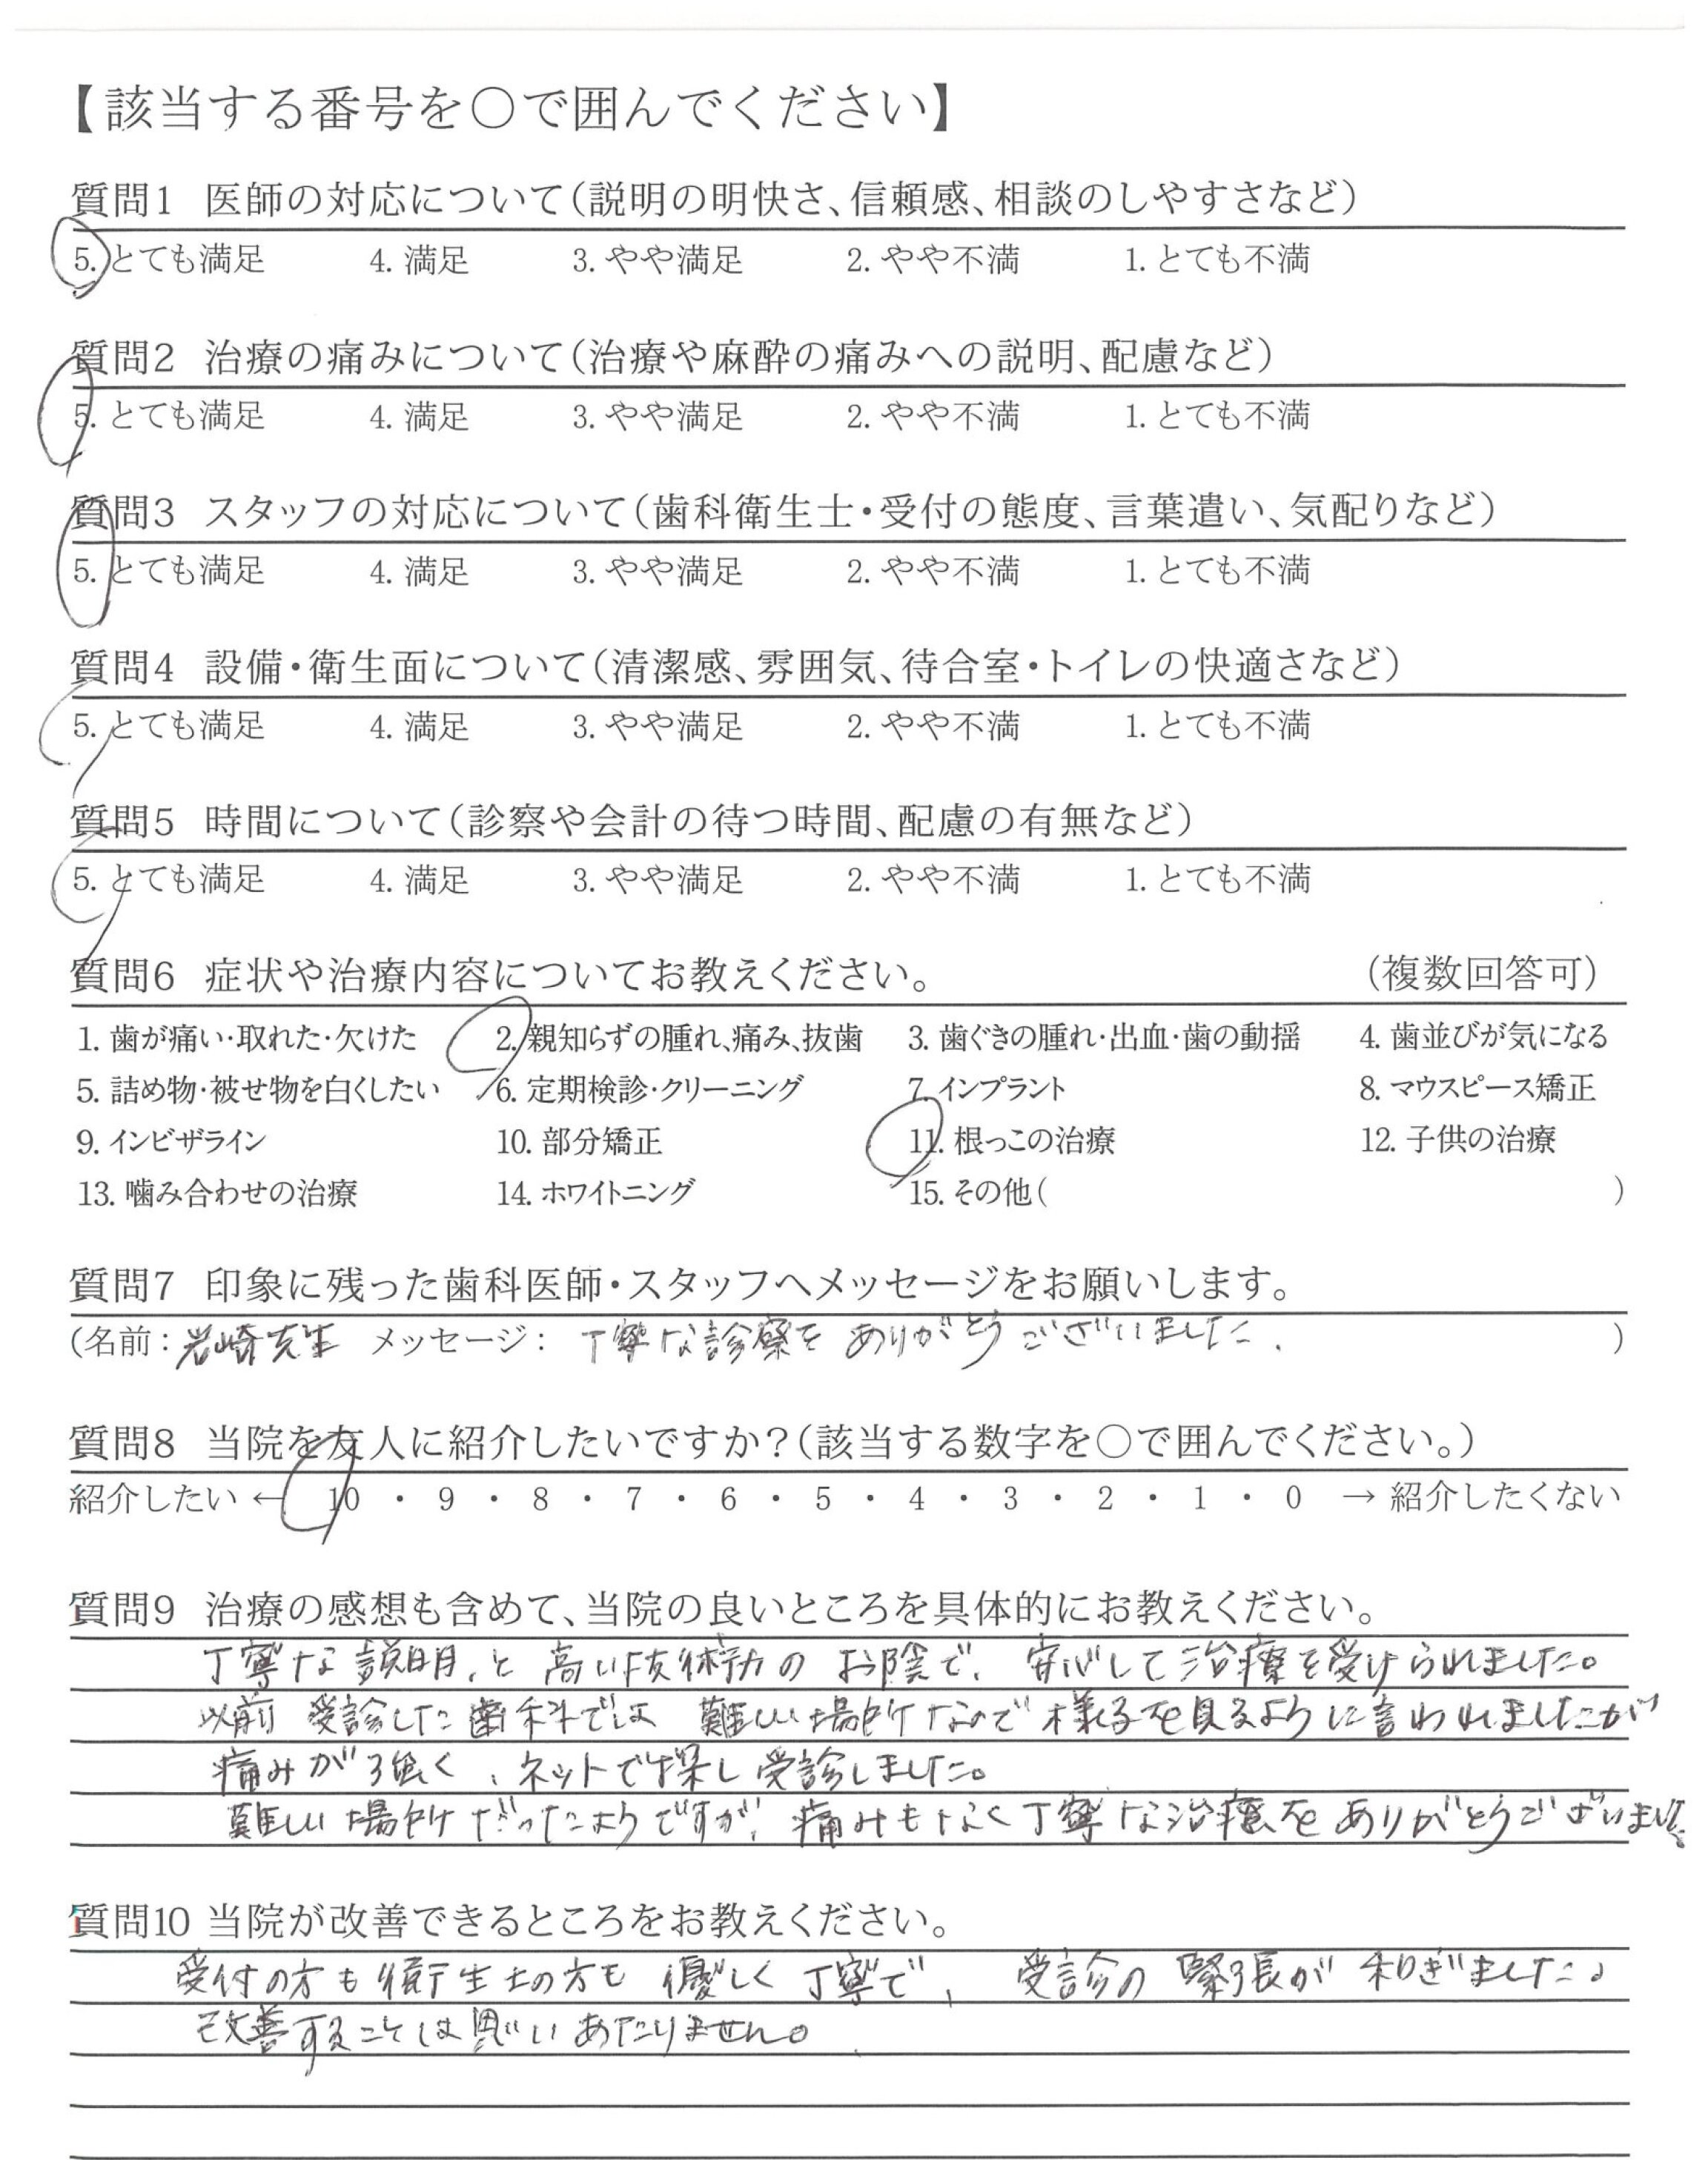 【該当する番号を○で囲んでください】
質問1 医師の対応について（説明の明快さ、信頼感、相談のしやすさなど）
5. とても満足 4. 満足 3. やや満足 2. やや不満 1. とても不満
質問2 治療の痛みについて（治療や麻酔の痛みへの説明、配慮など）
5. とても満足 4. 満足 3. やや満足 2. やや不満 1. とても不満
質問3 スタッフの対応について（歯科衛生士・受付の態度、言葉遣い、気配りなど）
5. とても満足 4. 満足 3. やや満足 2. やや不満 1. とても不満
質問4 設備・衛生面について（清潔感、雰囲気、待合室・トイレの快適さなど）
5. とても満足 4. 満足 3. やや満足 2. やや不満 1. とても不満
質問5 時間について（診察や会計の待つ時間、配慮の有無など）
5. とても満足 4. 満足 3. やや満足 2. やや不満 1. とても不満
質問6 症状や治療内容についてお教えください。 （複数回答可）
1. 歯が痛い・取れた・欠けた 2. 親知らずの腫れ、痛み、抜歯 3. 歯ぐきの腫れ・出血・歯の動揺 4. 歯並びが気になる
5. 詰め物・被せ物を白くしたい 6. 定期検診・クリーニング 7. インプラント 8. マウスピース矯正
9. インビザライン 10. 部分矯正 11. 根っこの治療 12. 子供の治療
13. 噛み合わせの治療 14. ホワイトニング 15. その他（ ）
質問7 印象に残った歯科医師・スタッフへメッセージをお願いします。
（名前：岩崎先生 メッセージ： 丁寧な診察をありがとうございました. ）
質問8 当院を友人に紹介したいですか？（該当する数字を○で囲んでください。）
紹介したい ← 10 ・ 9 ・ 8 ・ 7 ・ 6 ・ 5 ・ 4 ・ 3 ・ 2 ・ 1 ・ 0 → 紹介したくない
質問9 治療の感想も含めて、当院の良いところを具体的にお教えください。
丁寧な説明、と高い技術力のお陰で、安心して治療を受けられました。
以前受診した歯科では難しい場所なので様子を見るように言われましたが
痛みが強く、ネットで探し受診しました。
難しい場所だったようですが、痛みもなく丁寧な治療をありがとうございました。
質問10 当院が改善できるところをお教えください。
受付の方も衛生士の方も優しく丁寧で、受診の緊張が和ぎました。
改善することは思いあたりません。